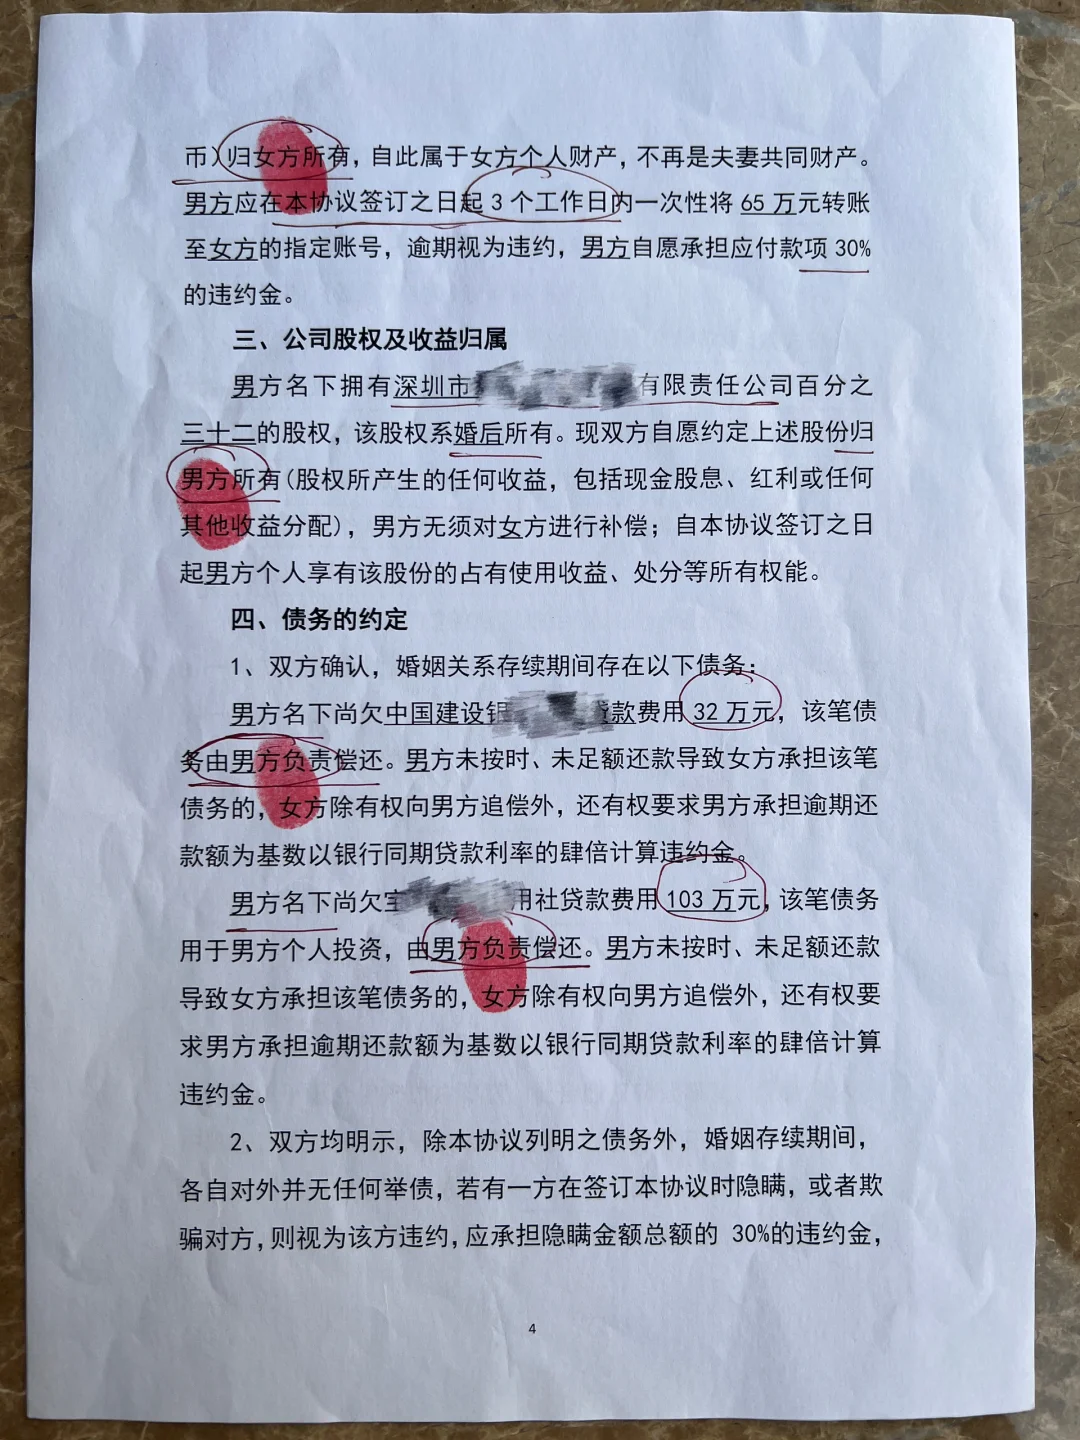 币）归女方所有，自此属于女方个人财产，不再是夫妻共同财产。
男方应在本协议签订之日起 3 个工作日内一次性将 65 万元转账
至女方的指定账号，逾期视为违约，男方自愿承担应付款项 30%
的违约金。
三、公司股权及收益归属
男方名下拥有深圳市有限责任公司百分之
三十二的股权，该股权系婚后所有。现双方自愿约定上述股份归
男方所有(股权所产生的任何收益，包括现金股息、红利或任何
其他收益分配)，男方无须对女方进行补偿；自本协议签订之日
起男方个人享有该股份的占有使用收益、处分等所有权能。
四、债务的约定
1、双方确认，婚姻关系存续期间存在以下债务：
男方名下尚欠中国建设银款费用 32 万元，该笔债
务由男方负责偿还。男方未按时、未足额还款导致女方承担该笔
债务的，女方除有权向男方追偿外，还有权要求男方承担逾期还
款额为基数以银行同期贷款利率的肆倍计算违约金。
男方名下尚欠用社贷款费用 103 万元，该笔债务
用于男方个人投资，由男方负责偿还。男方未按时、未足额还款
导致女方承担该笔债务的，女方除有权向男方追偿外，还有权要
求男方承担逾期还款额为基数以银行同期贷款利率的肆倍计算
违约金。
2、双方均明示，除本协议列明之债务外，婚姻存续期间，
各自对外并无任何举债，若有一方在签订本协议时隐瞒，或者欺
骗对方，则视为该方违约，应承担隐瞒金额总额的 30%的违约金，
4